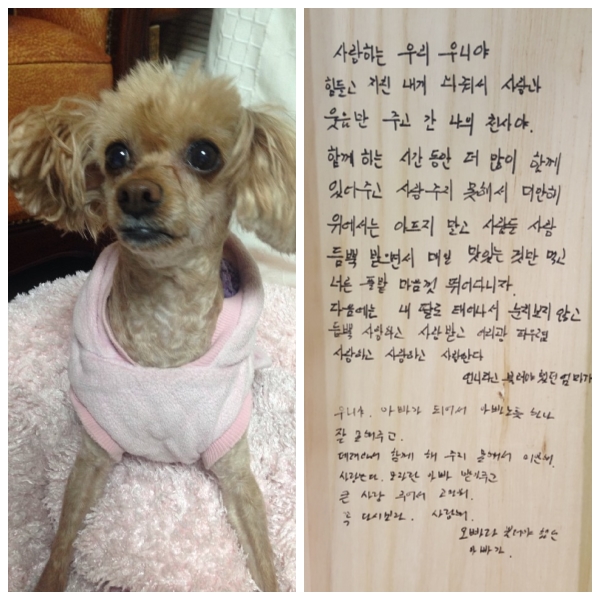 사랑하는 우리 우니야
힘들고 지친 내게 와서 사랑과
웃음만 주고 간 나의 천사야.
함께 하는 시간 동안 더 많이 함께
있어주고 사랑주지 못해서 미안해
위에서는 아프지 말고 사람들 사랑
듬뿍 받으면서 매일 맛있는 것만 먹고
너른 풀밭 마음껏 뛰어다니자.
다음에는 내 딸로 태어나서 눈치보지 않고
듬뿍 사랑하고 사랑받고 어리광 피우렴
사랑하고 사랑하고 사랑한다
언니라고 불러야 했던 엄마가
우니야. 아빠가 되어서 아빠노릇 하나
잘 못해주고.
함께 해 주지 못해서 미안해.
사랑한다. 모자란 아빠
큰 사랑 주어서 고마워.
꼭 다시보자. 사랑해.
오빠라 불러야 했던
아빠가.